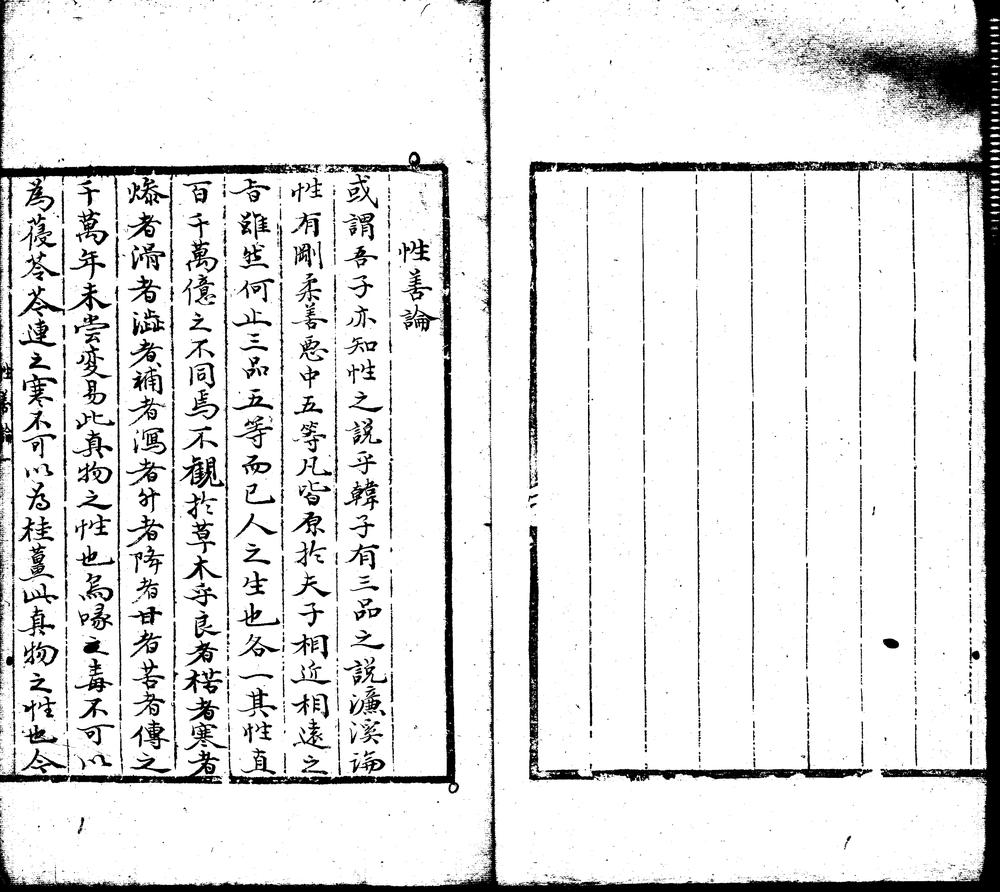 性善論
或謂吾子亦知性之說乎韓子有三品之說濂溪論
性有剛柔善惡中五等凡皆原於夫子相近相遠之
旨雖然何止三品五等而已人之生也各一其性直
百千萬億之不同焉不觀於草木乎良者楛者寒者
燥者滑者澁者補者瀉者升者降者甘者苦者傳之
千萬年未嘗変易此真物之性也烏喙之毒不可以
為葠苓苓連之寒不可以為桂薑此真物之性也今
性善論一